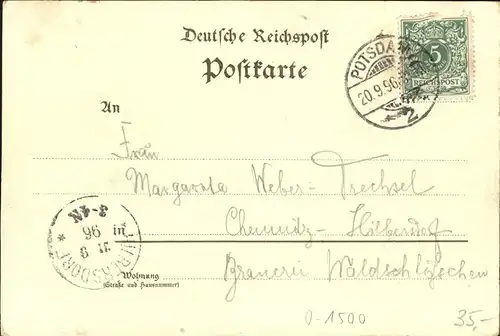 Deutsche Reichspost
Postkarte
5
REICHSPOST
POTSDAM
20.9.96
2
An
Frau
Margareta Weber-Trechsel
in
Chemnitz-Hilbersdorf
Brauerei Waldschlösschen
HILBERSDORF *
96
3-4N
Wohnung
(Straße und Hausnummer)
0-1500
35,-